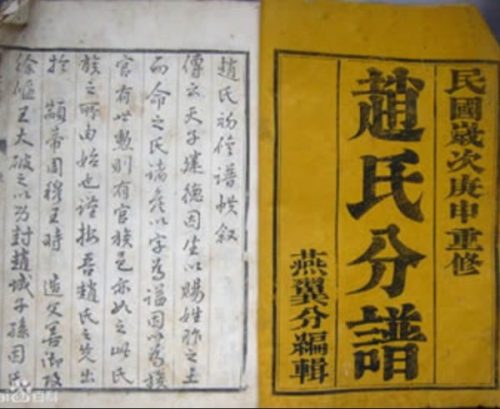 民國歲次庚申重修
趙氏分譜
燕翼分編輯
趙氏初修譜牒叙
傳云天子建德因生以賜姓胙之土
而命之氏諸矦以字為謚因以為族
官有世勲則有官族邑亦如之此氏
族之所由始也謹按吾趙氏之先出
於 顓帝周穆王時 造父善御攻
徐偃王大破之以功封趙城子孫因氏
百科